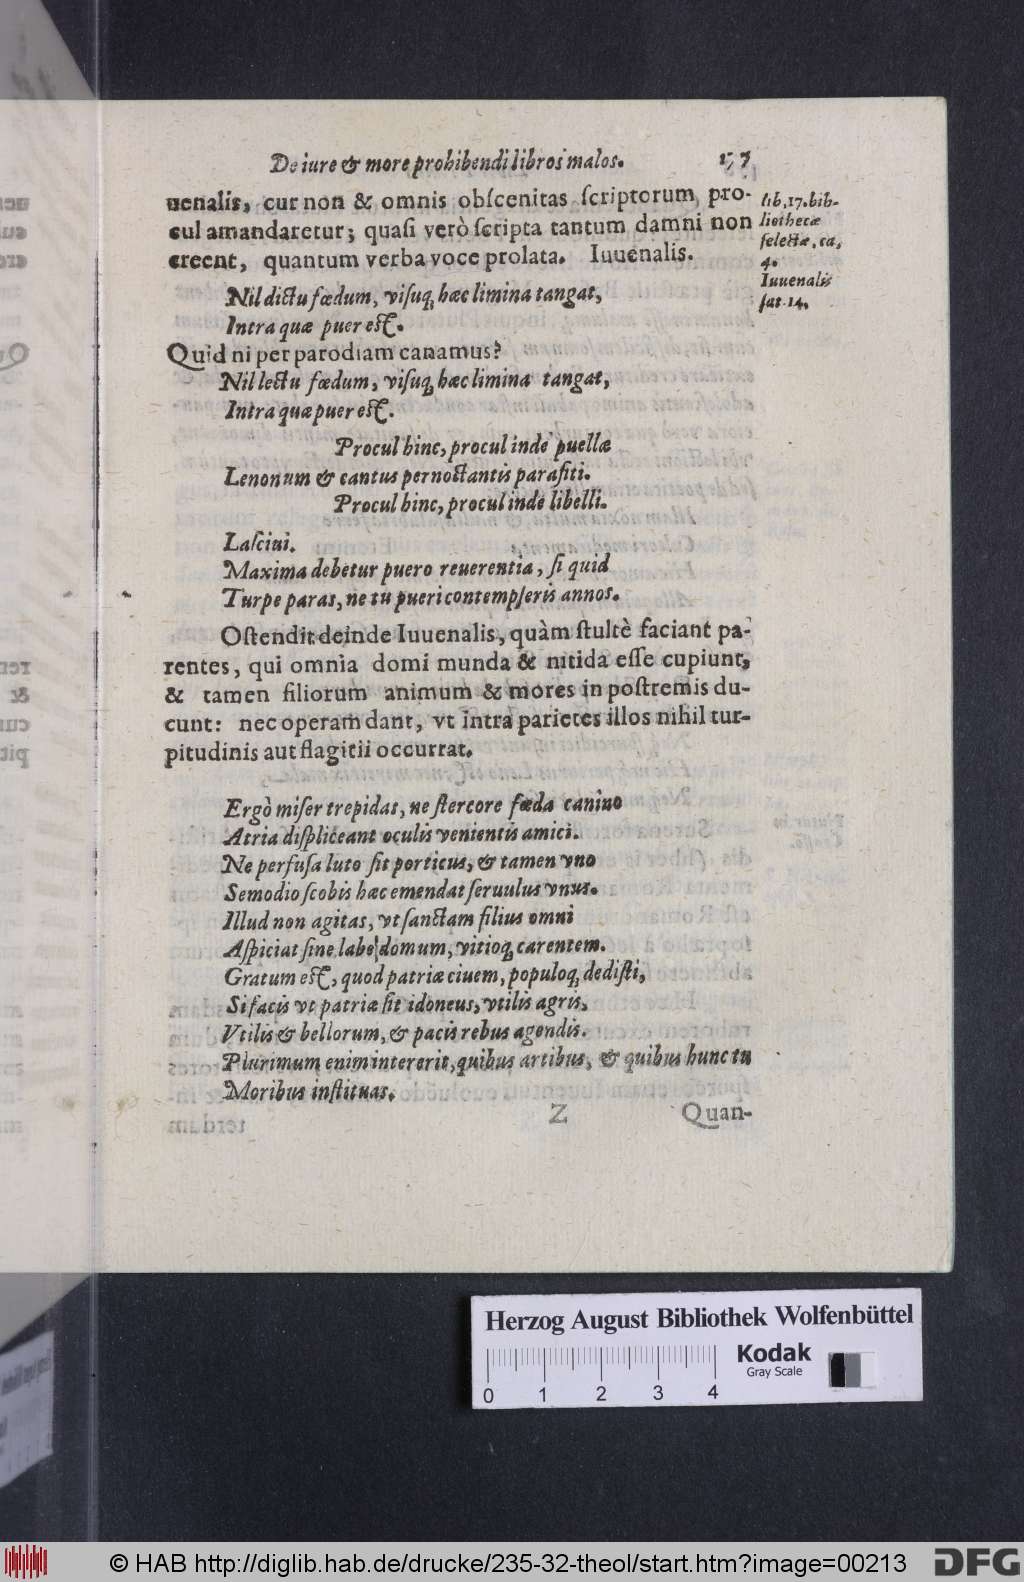 De iure & more prohibendi libros malos.
uenalis, cur non & omnis obſcenitas ſcriptorum pro-
cul amandaretur; quaſi verò ſcripta tantum damni non
creent, quantum verba voce prolata. Iuuenalis.
lib. 17. bib-
liothecæ
ſelectæ, ca,
4.
Iuuenalis
ſat. 14.
Nil dictu fœdum, viſuq́ hæc limina tangat,
Intra quæ puer eſt.
Quid ni per parodiam canamus?
Nil lectu fœdum, viſuq́ hæc limina tangat,
Intra quæ puer eſt.
Procul hinc, procul inde puellæ
Lenonum & cantus pernoctantis paraſiti.
Procul hinc, procul inde libelli.
Laſciui.
Maxima debetur puero reuerentia, ſi quid
Turpe paras, ne tu pueri contempſeris annos.
Oſtendit deinde Iuuenalis, quàm ſtultè faciant pa-
rentes, qui omnia domi munda & nitida eſſe cupiunt,
& tamen filiorum animum & mores in poſtremis du-
cunt: nec operam dant, vt intra parietes illos nihil tur-
pitudinis aut flagitii occurrat.
Ergò miſer trepidat, ne ſtercore fœda canino
Atria diſpliceant oculis venientis amici.
Ne perfuſa luto ſit porticus, & tamen vno
Semodio ſcobis hæc emendat ſeruulus vnus.
Illud non agitas, vt ſanctam filius omni
Aſpiciat ſine labe domum, vitioq́ carentem.
Gratum eſt, quod patriæ ciuem, populoq́ dediſti,
Si facis vt patriæ ſit idoneus, vtilis agris,
Vtilis & bellorum, & pacis rebus agendis.
Plurimum enim intererit, quibus artibus, & quibus hunc tu
Moribus inſtituas.
Z Quan-
Herzog August Bibliothek Wolfenbüttel
Kodak
Gray Scale
0 1 2 3 4
© HAB http://diglib.hab.de/drucke/235-32-theol/start.htm?image=00213
DFG